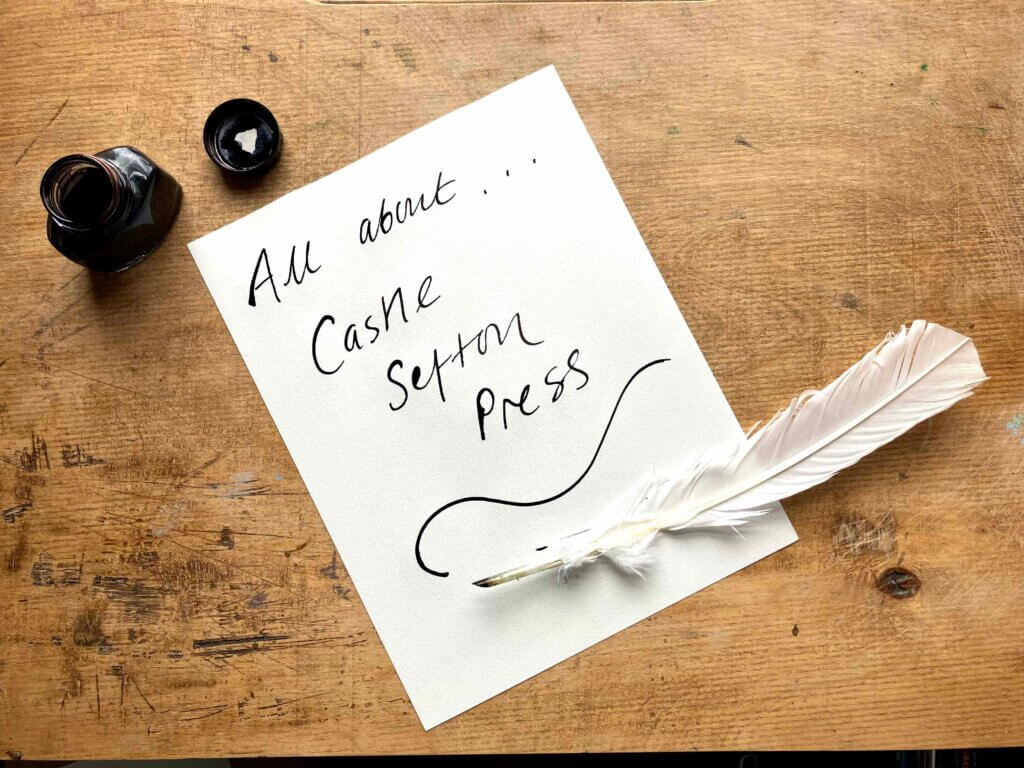 All about...
Castle
Sefton
Press